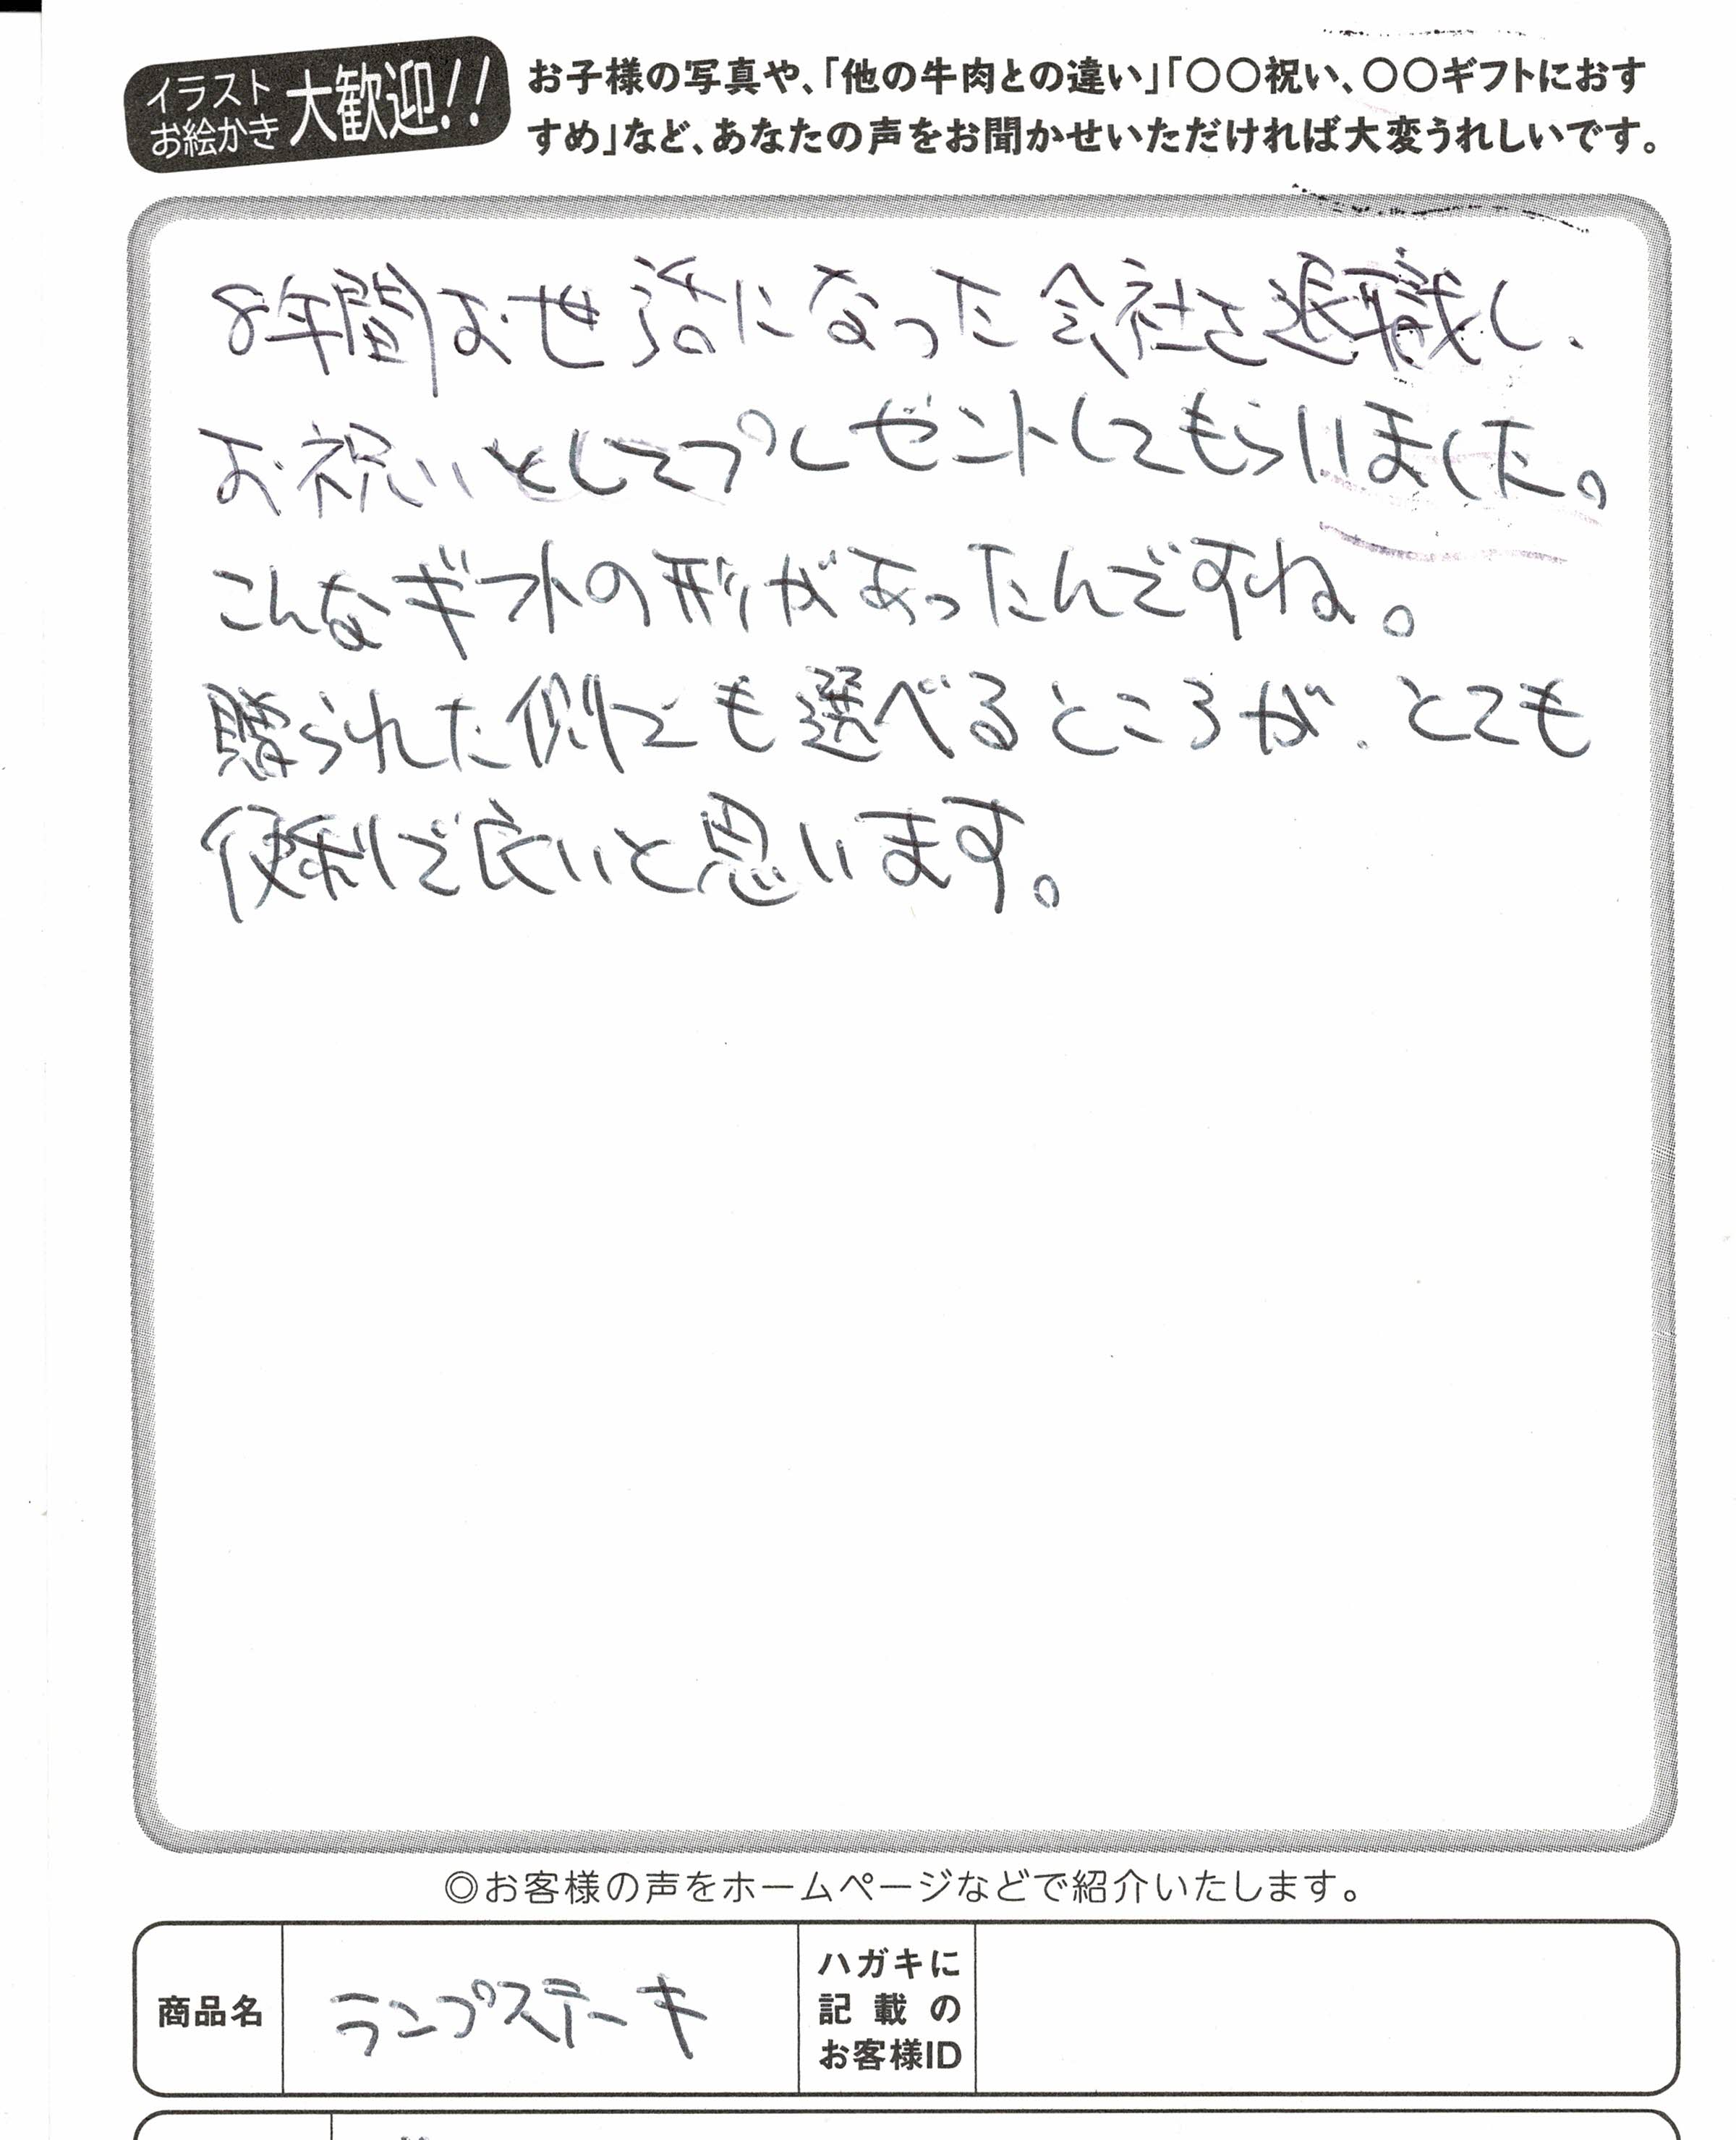 イラスト
お絵かき
大歓迎!!
お子様の写真や、「他の牛肉との違い」「〇〇祝い、〇〇ギフトにおす
すめ」など、あなたの声をお聞かせいただければ大変うれしいです。
8年間お世話になった会社を退職し、
お祝いとしてプレゼントしてもらいました。
こんなギフトの形があったんですね。
贈られた側でも選べるところが、とても
便利で良いと思います。
◎お客様の声をホームページなどで紹介いたします。
商品名
ランプステーキ
ハガキに
記載の
お客様ID